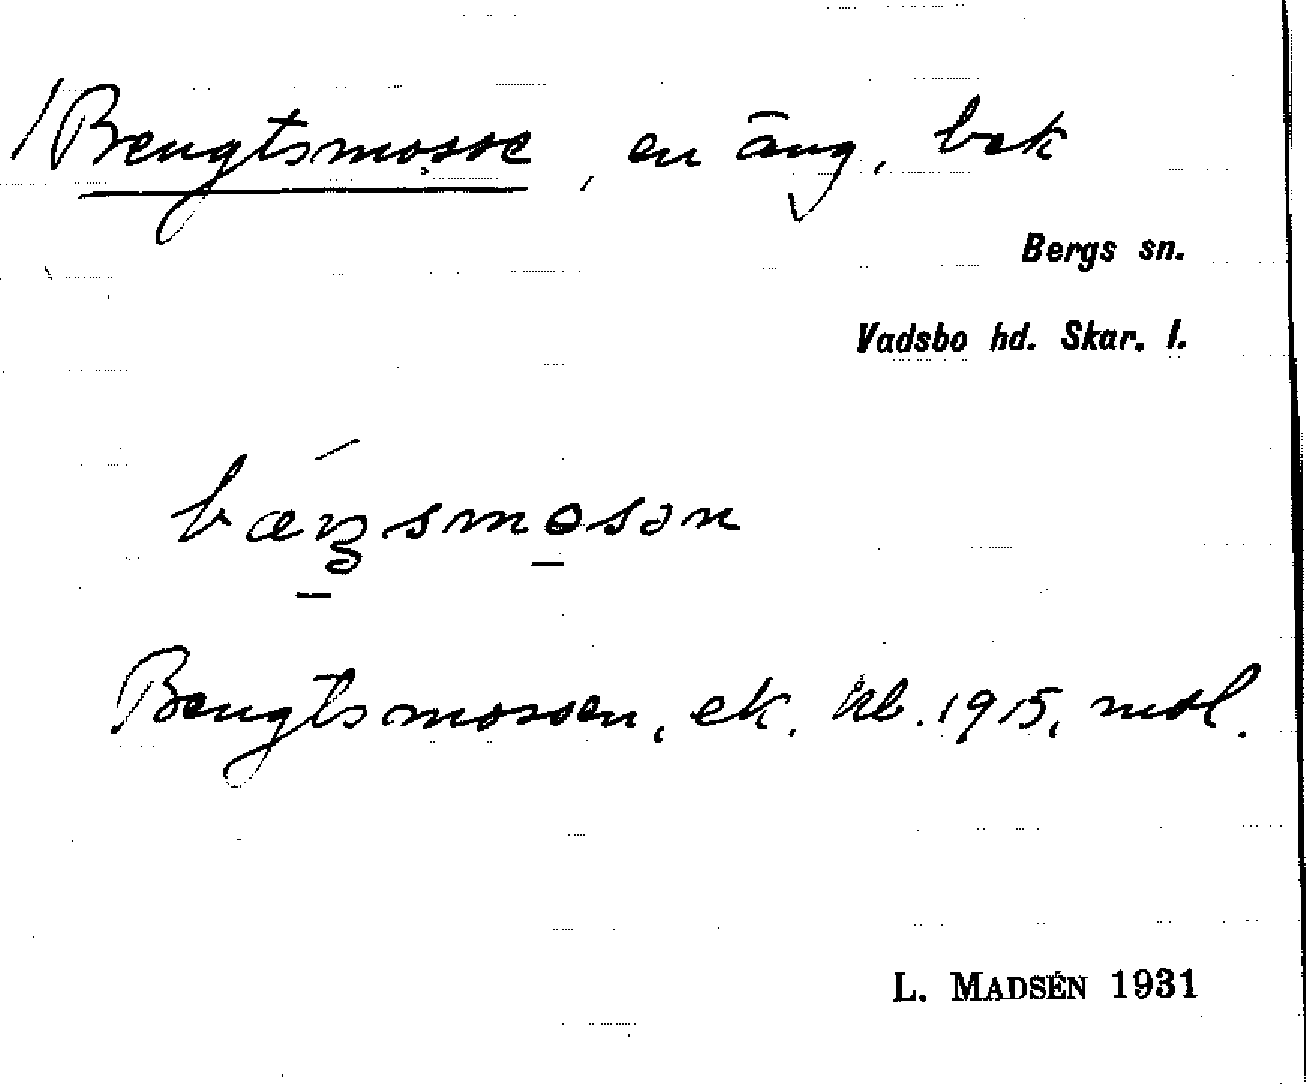 /Bengtsmosse, en äng, bek
Bergs sn.
Vadsbo hd. Skar. l.
bæŋsmosən
Bengtsmossen, ek. kb. 1915, mtl.
L. MADSÉN 1931